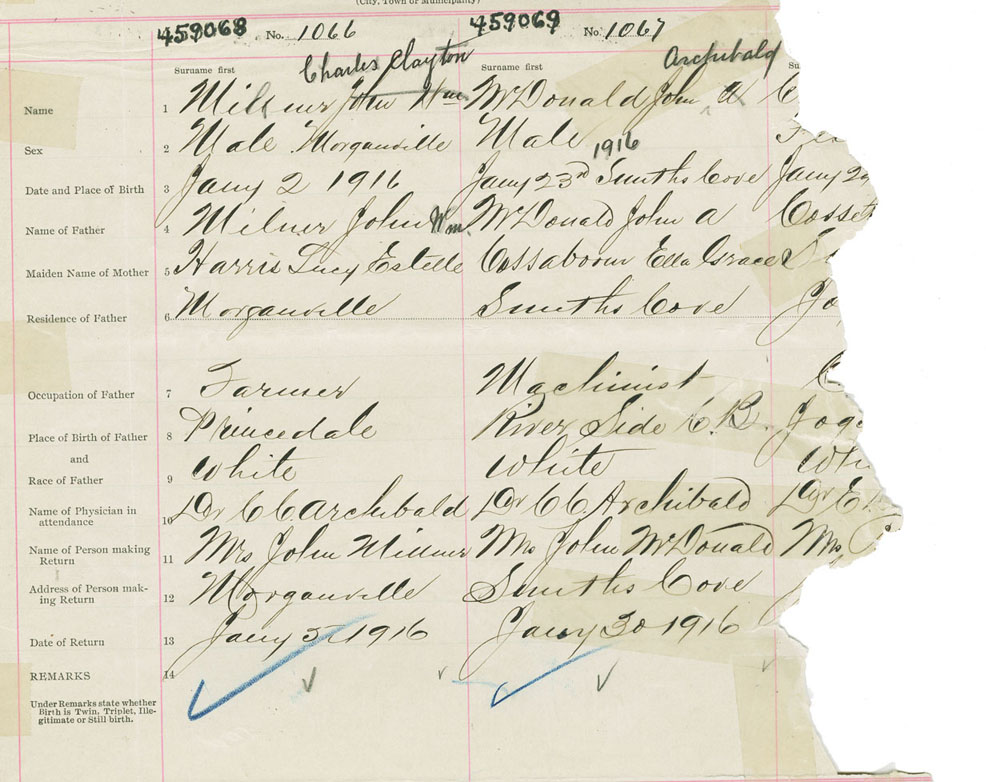 (City, Town or Municipality)
459068 No. 1066 459069 No. 1067
Charles Clayton Archibald
Surname first Surname first Su
Name 1 Milner John Wm McDonald John A C
Sex 2 Male Morganville Male
1916
Date and Place of Birth 3 Jany 2 1916 Jany 23rd Smiths Cove Jany 2
Name of Father 4 Milner John Wm. McDonald John A Cosset
Maiden Name of Mother 5 Harris Lucy Estelle Cossaboom Ella Grace
Residence of Father 6 Morganville Smiths Cove Jo
Occupation of Father 7 Farmer Machinist
Place of Birth of Father 8 Princedale River Side C.B. Jogg
and
Race of Father 9 White White Whi
Name of Physician in
attendance 10 Dr C C Archibald Dr C C Archibald Dr
Name of Person making
Return 11 Mrs John Milner Mrs John McDonald Mrs
Address of Person mak-
ing Return 12 Morganville Smiths Cove
Date of Return 13 Jany 5 1916 Jany 30 1916
REMARKS 14
Under Remarks state whether
Birth is Twin, Triplet, Ille-
gitimate or Still birth.